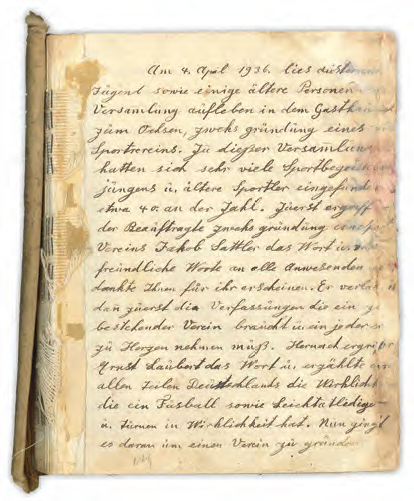 Am 4. April 1936. lies die
Jugend sowie einige ältere Personen
Versamlung aufleben in dem Gasthau
zum Ochsen, zwecks gründung eines
Sportvereins. Zu diegsen Versamlun
hatten sich sehr viele Sportbegei
jüngens u. ältere Sportler eingefund
etwa 40. an der Zahl. Zuerst ergriff
der Beauftragte zwecks gründung
Vereins Jakob Sattler das Wort u.
freundliche Worte an alle Anwesenden
dankte Ihnen für ihr erscheinen. Er verlas
dan zuerst die Verfassungen die ein
bestehender Verein braucht u. ein jeder
zu Herzen nehmen müß. Hernach ergriff
Ernst Laubert das Wort u. erzählte
allen Teilen Deutschlands die Wirklich
die ein Fusball sowie Leichtatledige-
u. Turnen in Wirklichkeit hat. Nun ging
es daran um einen Verein zu gründen